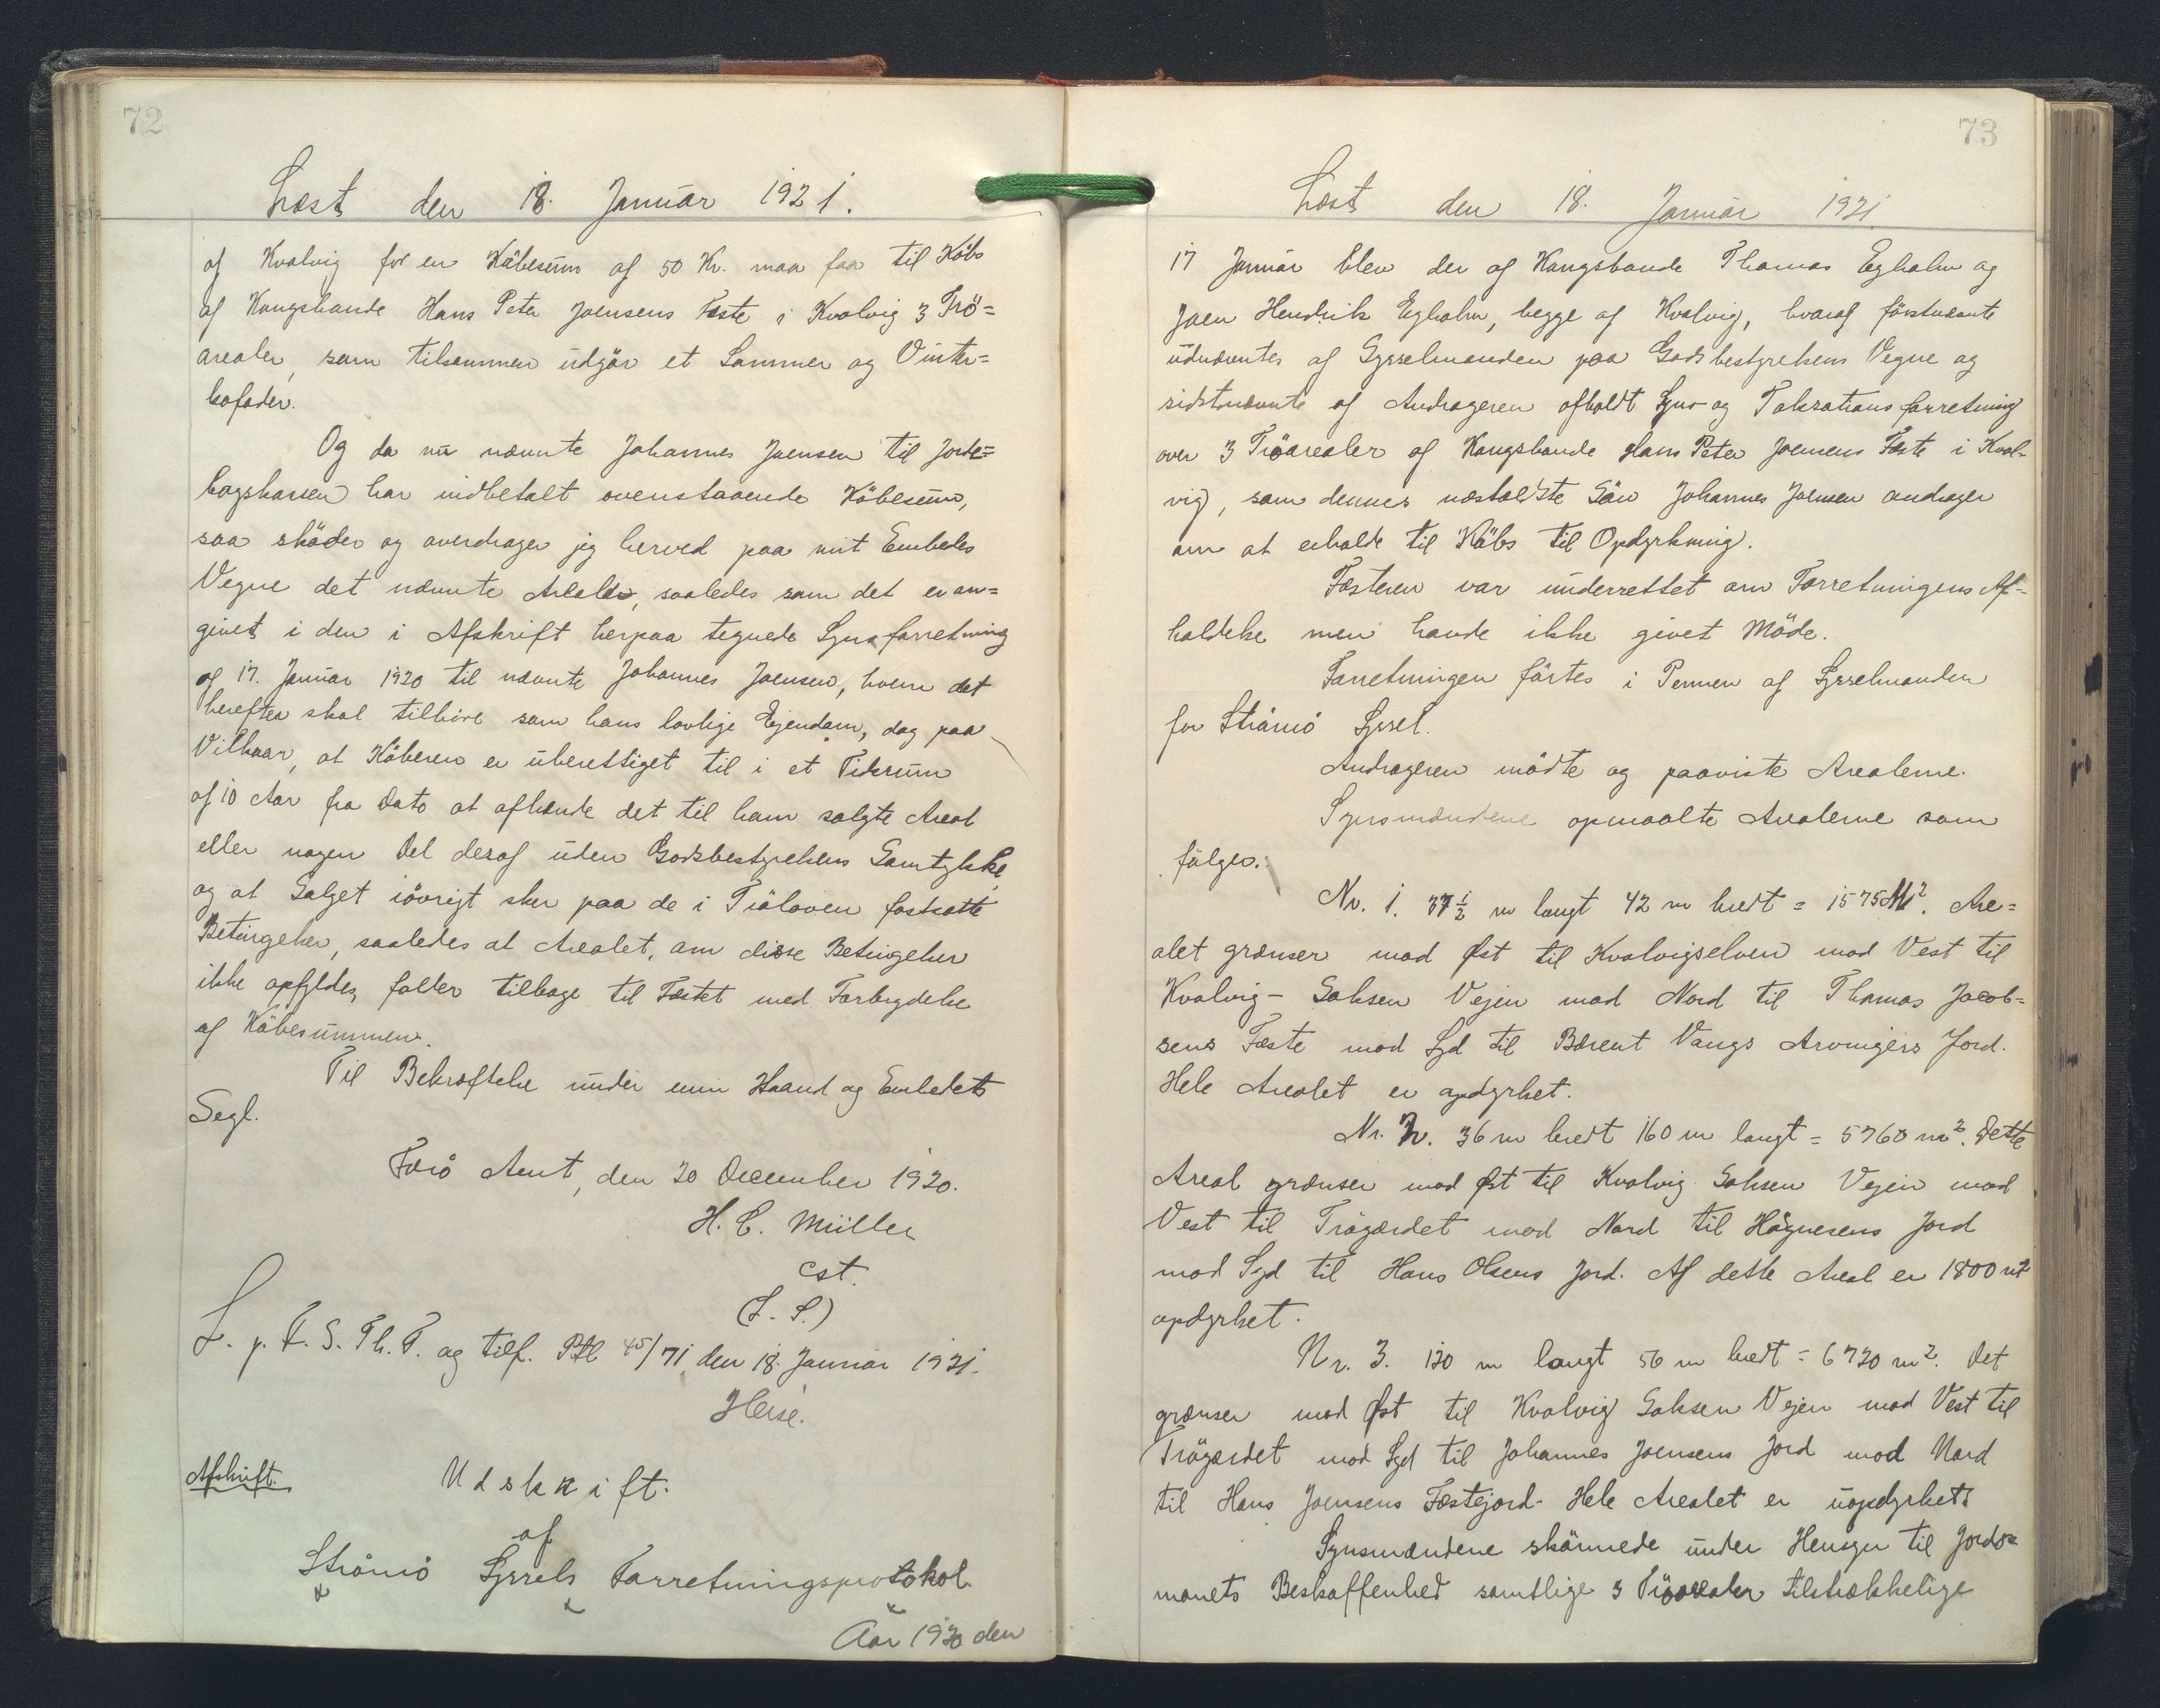 72
Læst den 18. Januar 1921.
af Kvalvig for en Købesum af 50 Kr. maa faa til Købs
af Kongsbonde Hans Peter Joensens Fæste i Kvalvig 3 Trö=
arealer, som tilsammen udgör et Sommer og Vinter=
kofoder.
Og da nu nævnte Johannes Joensen til Jorde=
bogskassen har indbetalt ovenstaaende Köbesum,
saa sköder og overdrager jeg herved paa mit Embedes
Vegne det nævnte Arealer, saaledes som det er an=
givet i den i Afskrift herpaa tegnede Synsforretning
af 17. Januar 1920 til nævnte Johannes Joensen, hvem det
herefter skal tilhöre som hans lovlige Ejendom, dog paa
Vilkaar, at Köberen er uberettiget til i et Tidsrum
af 10 Aar fra Dato at afhænde det til ham solgte Areal
eller nogen Del deraf uden Godsbestyrelsens Samtykke,
og at Salget iövrigt sker paa de i Tröloven fastsatte
Betingelser, saaledes at Arealet, om disse Betingelser
ikke opfyldes, falder tilbage til Fæstet med Forbrydelse
af Köbesummen.
Til Bekræftelse under min Haand og Embedets
Segl.
Færö Amt, den 20 December 1920.
H. C. Müller
cst.
(L. S.)
L. p. F. S. Th. T. og tilf. Ptl 45/71, den 18. Januar 1921.
Heise.
Afskrift.
Udskrift.
af
Strömö Syssels Forretningsprotokol.
Aar 1920 den
73
Læst den 18. Januar 1921
17 Januar blev der af Kongsbonde Thomas Egholm og
Joen Hendrik Egholm, begge af Kvalvig, hvoraf förstnævnte
udnævntes af Sysselmanden paa Godsbestyrelsens Vegne og
sidstnævnte af Andrageren afholdt Syns- og Taksationsforretning
over 3 Tröarealer af Kongsbonde Hans Peter Joensens Fæste i Kval-
vig, som dennes næstældste Sön Johannes Joensen andrager
om at erholde til Köbs til Opdyrkning.
Fæsteren var underrettet om Forretningens Af=
holdelse men havde ikke givet Möde.
Forretningen förtes i Pennen af Sysselmanden
for Strömö Syssel.
Andrageren mödte og paaviste Arealerne.
Synsmændene opmaalte Arealerne som
fölger.
Nr. 1. 37 1/2 m langt 42 m bredt = 1575 M2. Are=
alet grænser mod Øst til Kvalvigselven mod Vest til
Kvalvig - Saksen Vejen mod Nord til Thomas Jacob=
sens Fæste mod Syd til Bærent Vangs Arvingers Jord.
Hele Arealet er opdyrket.
Nr. 2. 36 m bredt 160 m langt = 5760 m2. Dette
Areal grænser mod Øst til Kvalvig Saksen Vejen mod
Vest til Trögærdet mod Nord til Högnesens Jord
mod Syd til Hans Olsens Jord. Af dette Areal er 1800 m2
opdyrket.
Nr. 3. 120 m langt 56 m bredt = 6720 m2. Det
grænser mod Øst til Kvalvig Saksen Vejen mod Vest til
Trögærdet mod Syd til Johannes Joensens Jord mod Nord
til Hans Joensens Fæstejord. Hele Arealet er uopdyrket.
Synsmændene skönnede under Hensyn til Jords=
monets Beskaffenhed samtlige 3 Tröarealer tilstrækkelige